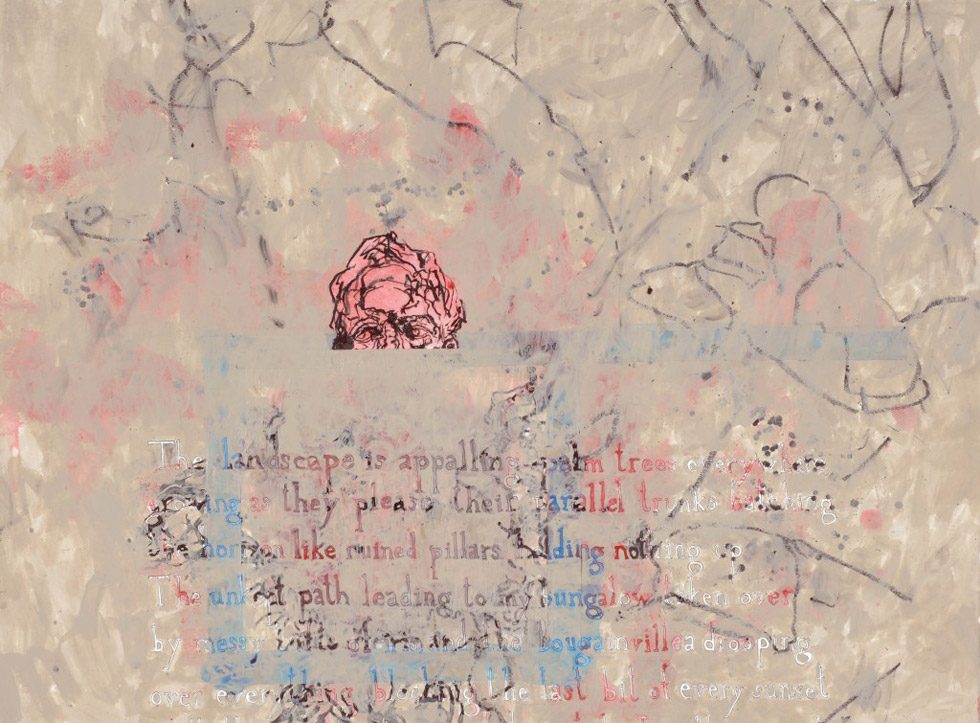 The landscape is appalling palm trees everywhere
as they please their parallel trunks
the horizon like ruined pillars holding nothing up
The unkept path leading to my bungalow taken over
by messy and the bougainvillea drooping
over everything blocking the last bit of every sunset